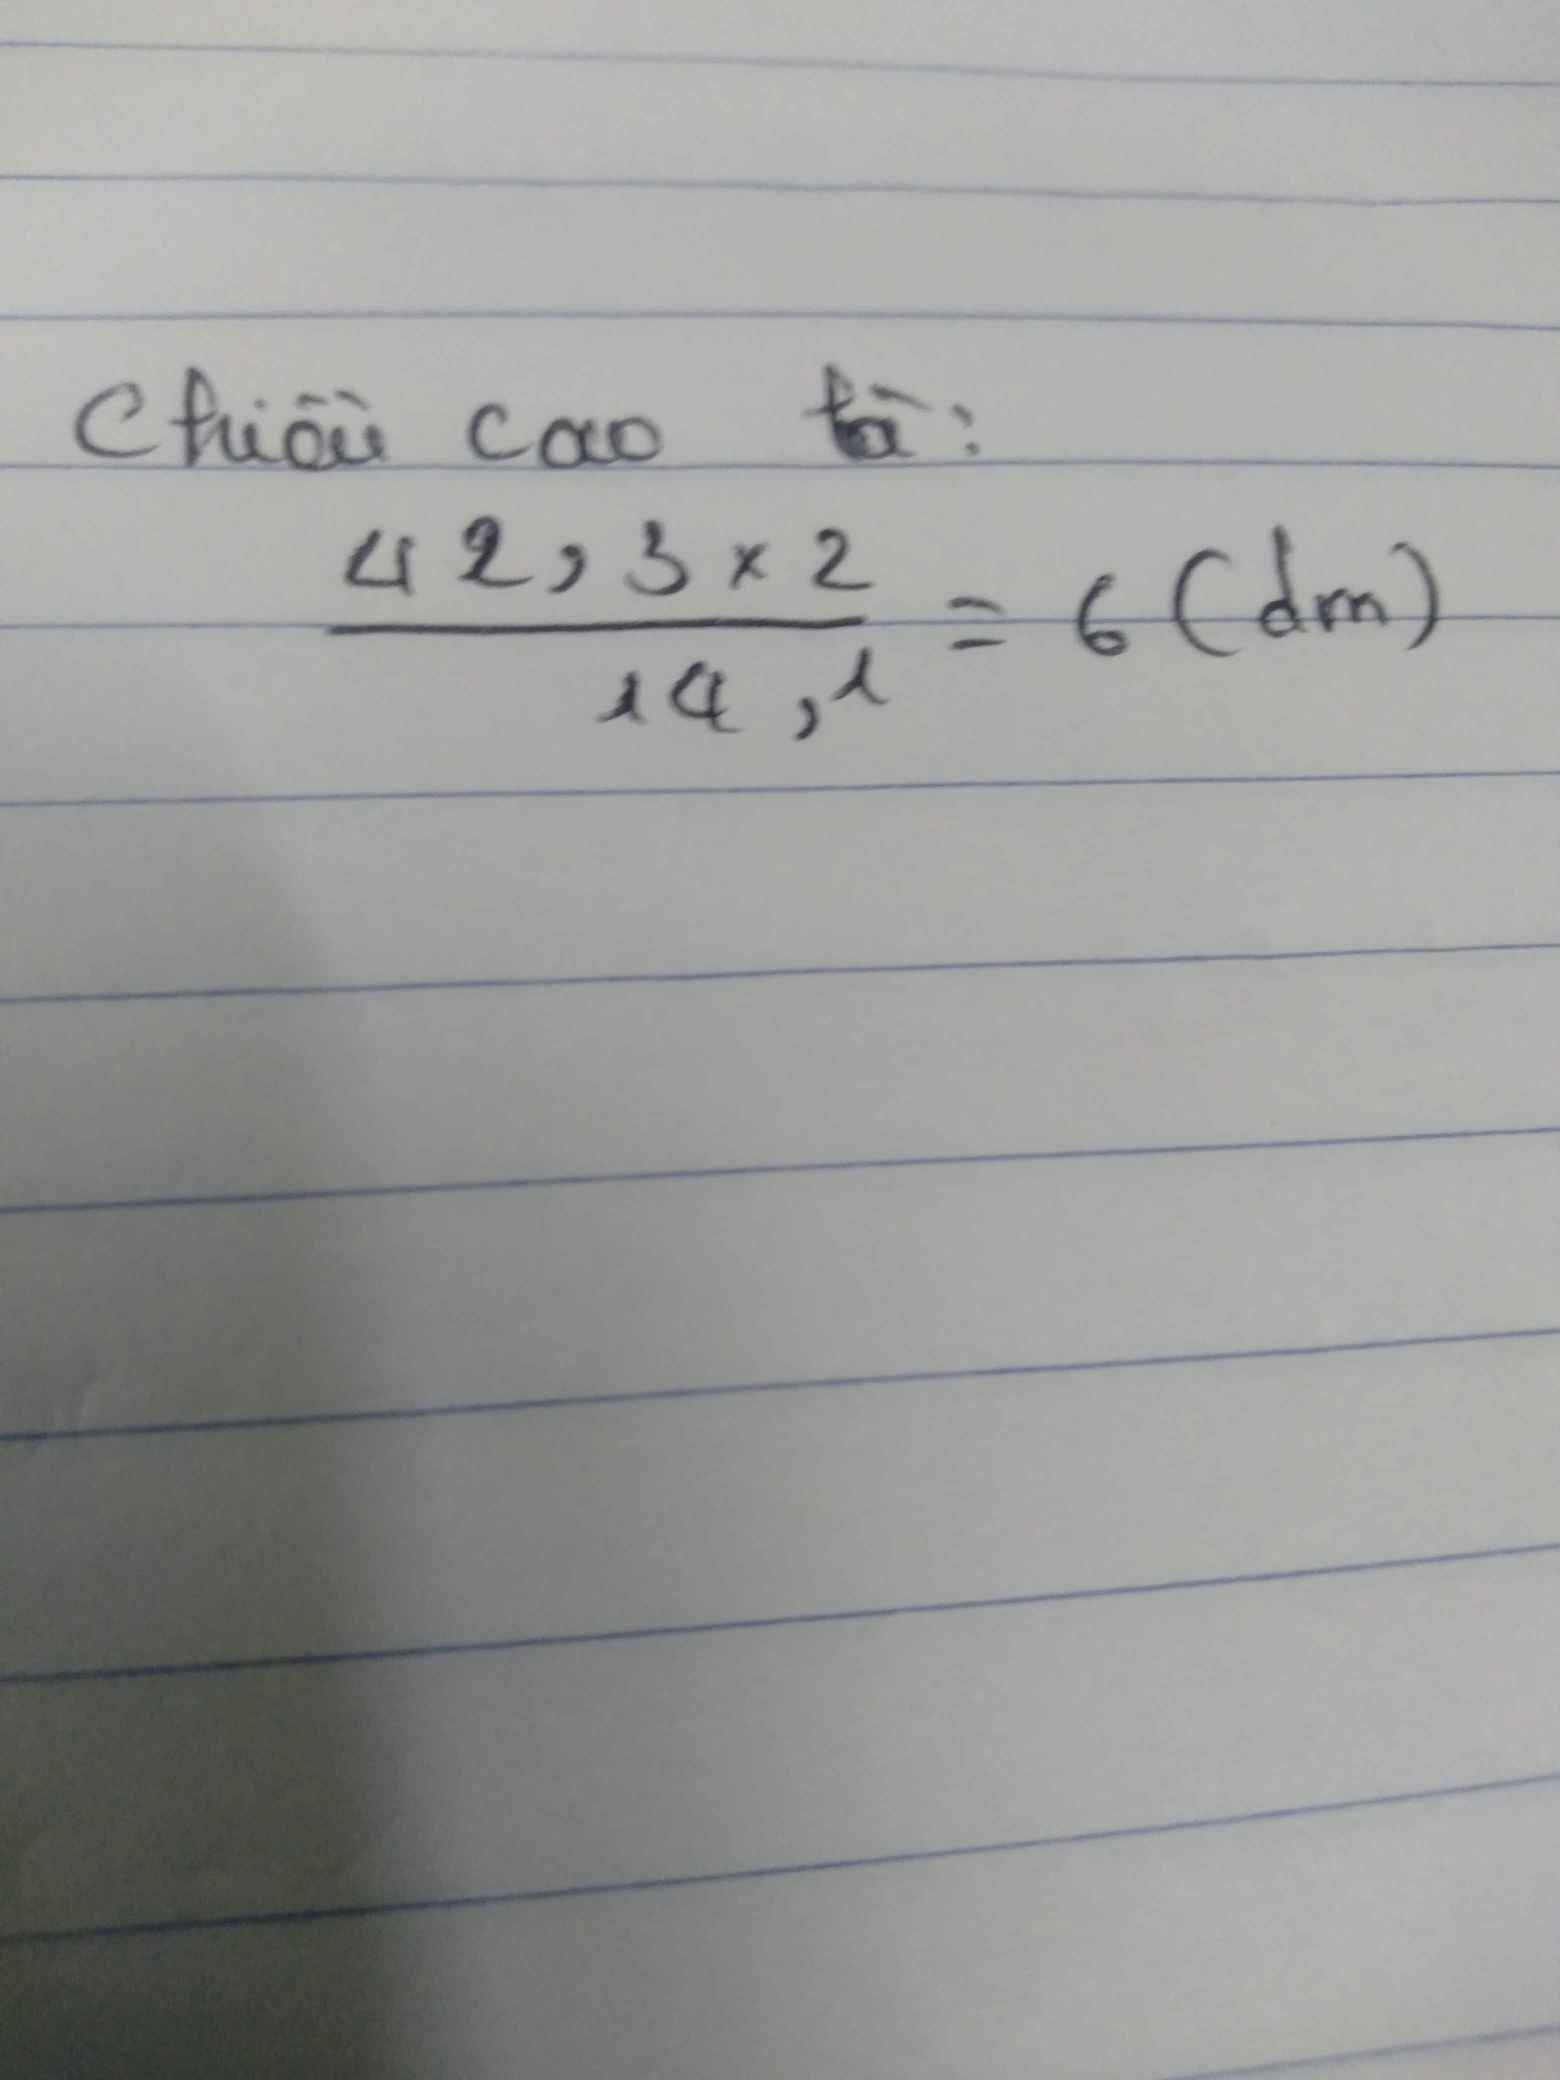 Chiều cao là:
42,3 x 2
14,1 = 6 (dm)